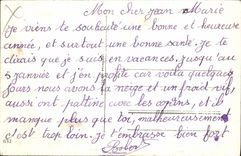 Mon cher Jean Marie
Je viens te souhaiter une bonne et heureuse
année, et surtout une bonne santé. Je te
dirais que je suis en vacances jusqu'au
5 janvier et j'en profite car voilà quelques
jours nous avons la neige et un froid vif,
aussi ont patine avec les copains, et il
manque plus que toi, malheureusement
c'est trop loin. Je t'embrasse bien fort
Robert